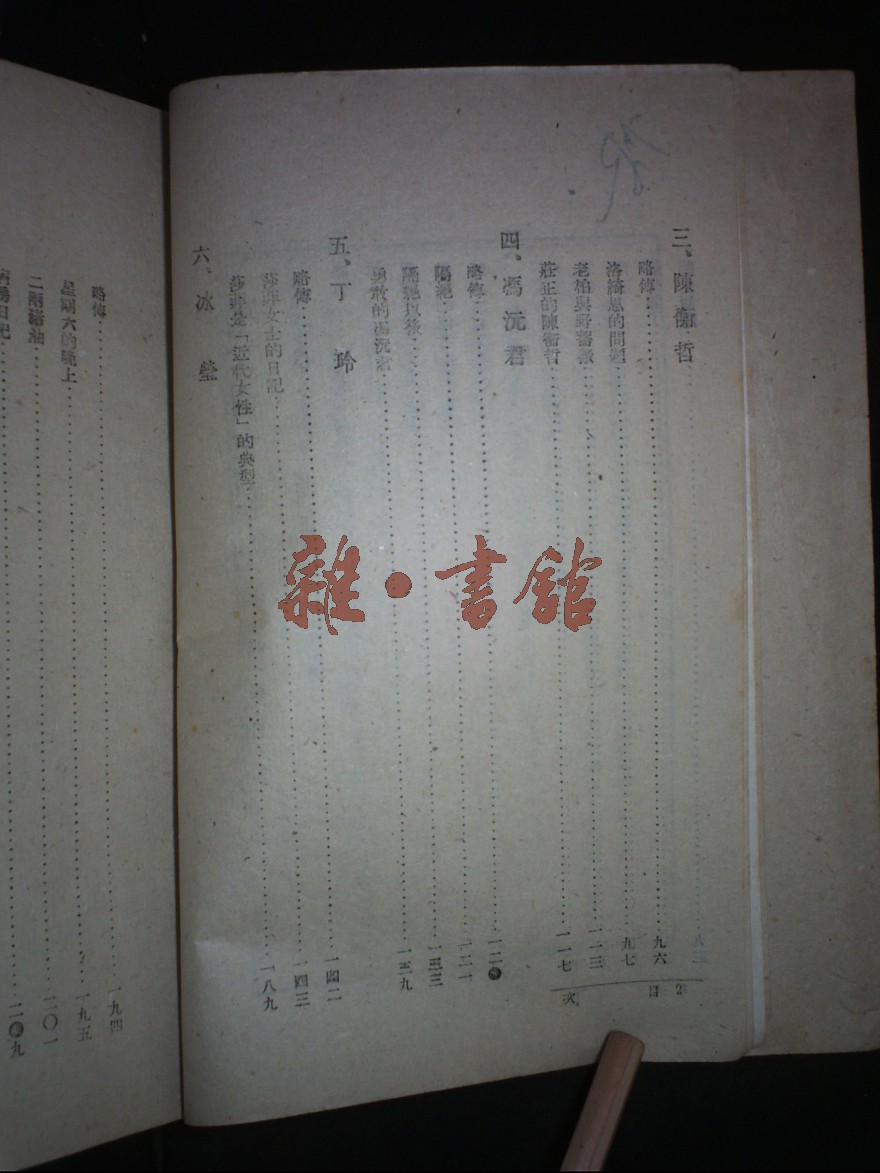 三、陳衡哲
略傳……九六
洛綺思的問題……九七
老柏與野薔薇……一一三
莊正的陳衡哲……一一七
四、馮沅君
略傳……一二〇
隔絕……一二一
隔絕以後……一三三
勇敢的馮沅君……一三九
五、丁玲
略傳……一四二
莎菲女士的日記……一四三
莎菲是「近代女性」的典型……一八九
六、冰瑩
目次
2
略傳……一九四
星期六的晚上……一九五
二兩緒油……二〇一
日記……二〇九
雜·書館